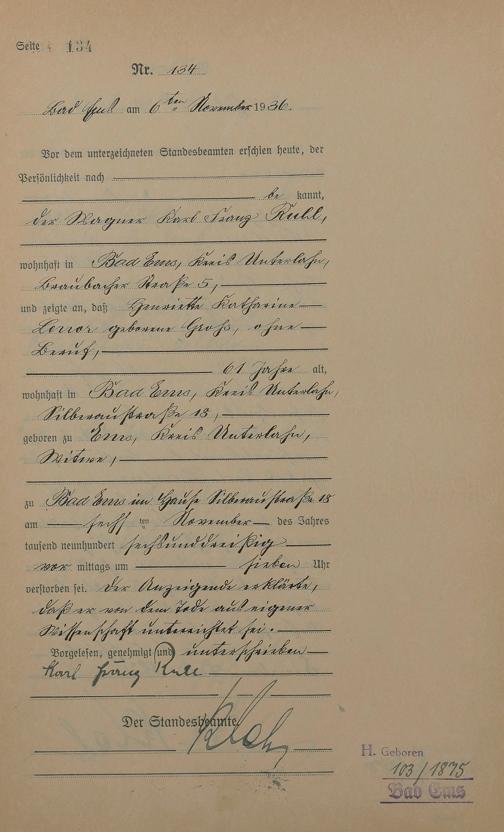 Seite 134
Nr. 134
Bad Ems am 6ten November 1936.
Vor dem unterzeichneten Standesbeamten erschien heute, der
Persönlichkeit nach
be kannt,
der Wagner Karl Franz Kull,
wohnhaft in Bad Ems, Kreis Unterlahn,
Braubacher Straße 5,
und zeigte an, daß Henriette Katharine
geborene Groß, ohne
Beruf,
61 Jahre alt,
wohnhaft in Bad Ems, Kreis Unterlahn,
Silberaustraße 18,
geboren zu Ems, Kreis Unterlahn,
Witwe,
zu Bad Ems im Hause Silberaustraße 18
am sechsten November des Jahres
tausend neunhundert sechsunddreißig
vor mittags um sieben Uhr
verstorben sei. Der Anzeigende erklärte,
daß er von dem Tode aus eigener
Wissenschaft unterrichtet sei.
Vorgelesen, genehmigt und unterschrieben
Karl Franz Kull
Der Standesbeamte
H. Geboren
103/1875
Bad Ems